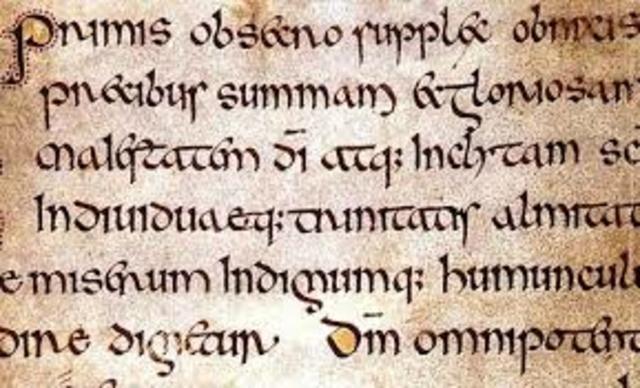 Primis obsecro supplex obnixis
precibus summam & gloriosam
maiestatem dī atq; inclytam sc
indiuiduaeq; trinitatis almitat
e miserum indignumq; humuncul
dine dignetur Dm̄ omnipotent